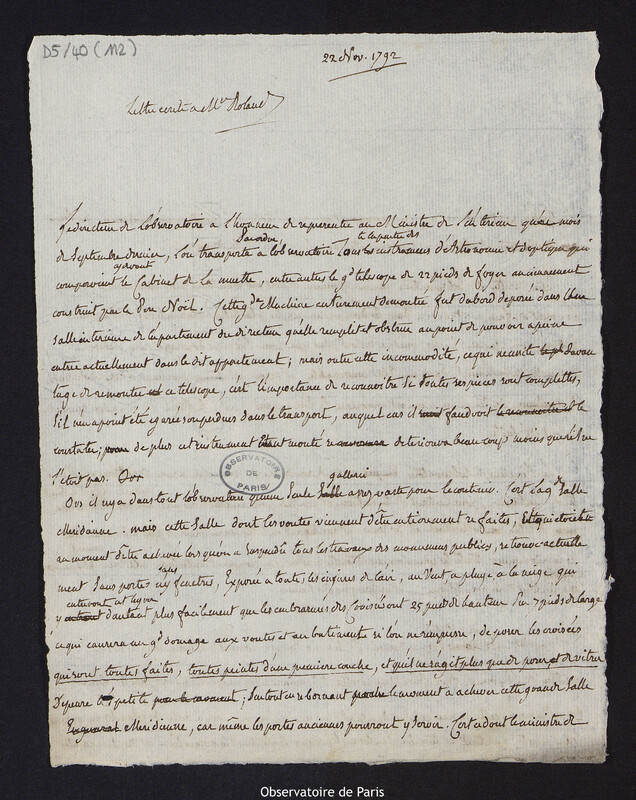 D5/40 (112)
22 Nov. 1792
Lettre écrite a Mr Roland
Le directeur de l'observatoire a l'honneur de representer au Ministre de l'interieur qu'au mois
d'accord la pluspart des
de Septembre dernier, l'on transporta a l'observatoire tous les instrumens d'Astronomie et d'optique qui
cydevant
composoient le Cabinet de la muette, entre autres le gd telescope de 22 pieds de foyer anciennement
construit par le Pere Noël. Cette gde Machine entierement demontée fut d'abord deposée dans
salle interieure de l'apartement du directeur qu'elle remplit et obstrue au point de pouvoir a peine
entrer actuellement dans le dit appartement; mais outre cette incommodité, ce qui necessite davan
tage de remonter ce telescope, c'est l'importance de reconnoitre si toutes ses pieces sont complettes,
s'il n'en a point été egarées ou perdues dans le transport, auquel cas il faudroit le
constater, de plus cet instrument monté se deteriorera beaucoup moins que s'il ne
l'etoit pas. Or
OBSERVATOIRE DE PARIS
gallerie
Or il n'y a dans tout l'observatoire qu'une seule assez vaste pour le contenir. C'est la gde Salle
Meridienne. mais cette Salle dont les voutes viennent d'être entierement refaites, et qui étoit
au moment d'être achevée lorsqu'on a suspendu tous les travaux des monumens publics, se trouve actuelle
sans
ment sans portes ny fenetres, Exposée a toutes les injures de l'air, au Vent a la pluye à la neige qui
entreront cet hyver
y d'autant plus facilement que les embrasures des croisées ont 25 pieds de hauteur sur 7 pieds de large
ce qui causera un gd domage aux voutes et au batiment si l'on ne s'empresse, de poser les croisées
qui sont toutes faites, toutes peintes d'une premiere couche, et qu'il ne s'agit plus que de poser et de vitrer
Depense petite, surtout en se bornant le moment a achever cette grande Salle
Meridienne, car même les portes anciennes pourront y servir. C'est ce dont le ministre de
Observatoire de Paris